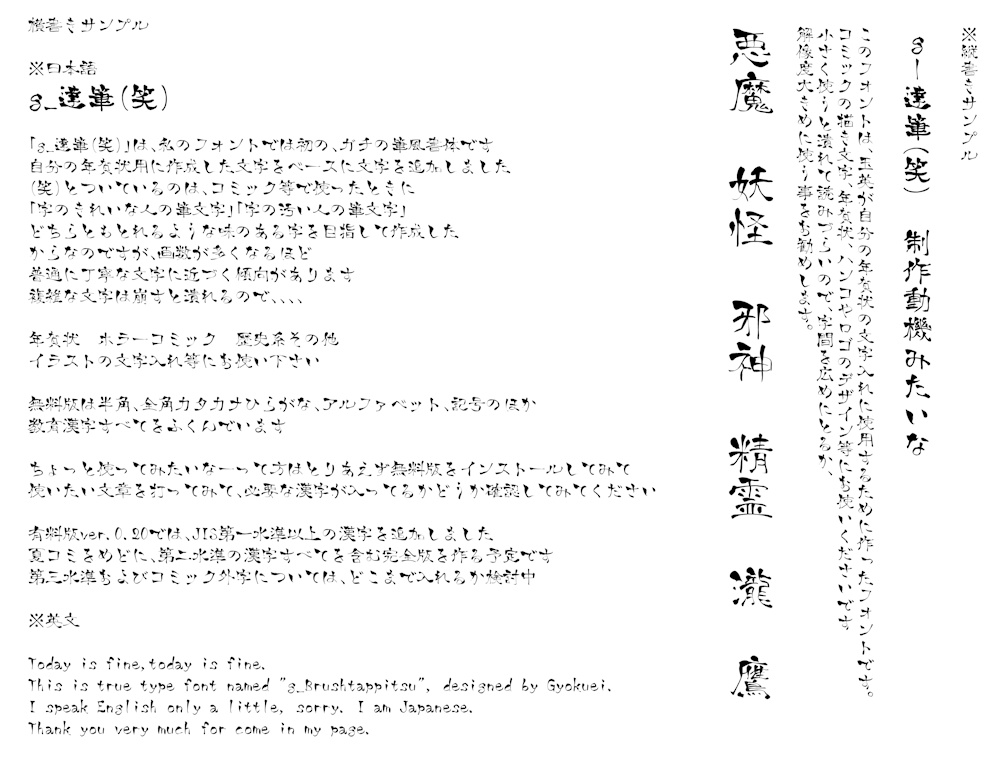 横書きサンプル
※日本語
g_達筆(笑)
「g_達筆(笑)」は、私のフォントでは初の、ガチの筆風書体です
自分の年賀状用に作成した文字をベースに文字を追加しました
(笑)とついているのは、コミック等で使ったときに
「字のきれいな人の筆文字」「字の汚い人の筆文字」
どちらともとれるような味のある字を目指して作成した
からなのですが、画数が多くなるほど
普通に丁寧な文字に近づく傾向があります
複雑な文字は崩すと潰れるので、、、、
年賀状　ホラーコミック　歴史系その他
イラストの文字入れ等にお使い下さい
無料版は半角、全角カタカナひらがな、アルファベット、記号のほか
教育漢字すべてをふくんでいます
ちょっと使ってみたいなーって方はとりあえず無料版をインストールしてみて
使いたい文章を打ってみて、必要な漢字が入ってるかどうか確認してみてください
有料版ver.0.20では、JIS第一水準以上の漢字を追加しました
夏コミをめどに、第二水準の漢字すべてを含む完全版を作る予定です
第三水準およびコミック外字については、どこまで入れるか検討中
※英文
Today is fine,today is fine.
This is true type font named "g_Brushtappitsu", designed by Gyokuei.
I speak English only a little, sorry. I am Japanese.
Thank you very much for come in my page.
※縦書きサンプル
g_達筆(笑)　制作動機みたいな
このフォントは、玉英が自分の年賀状の文字入れに使用するために作ったフォントです。
コミックの描き文字、年賀状、ハンコやロゴのデザイン等にお使いくださいです
小さく使うと潰れて読みづらいので、字間を広めにとるか、
解像度大きめに使う事をお勧めします。
悪魔　妖怪　邪神　精霊　瀧　鷹